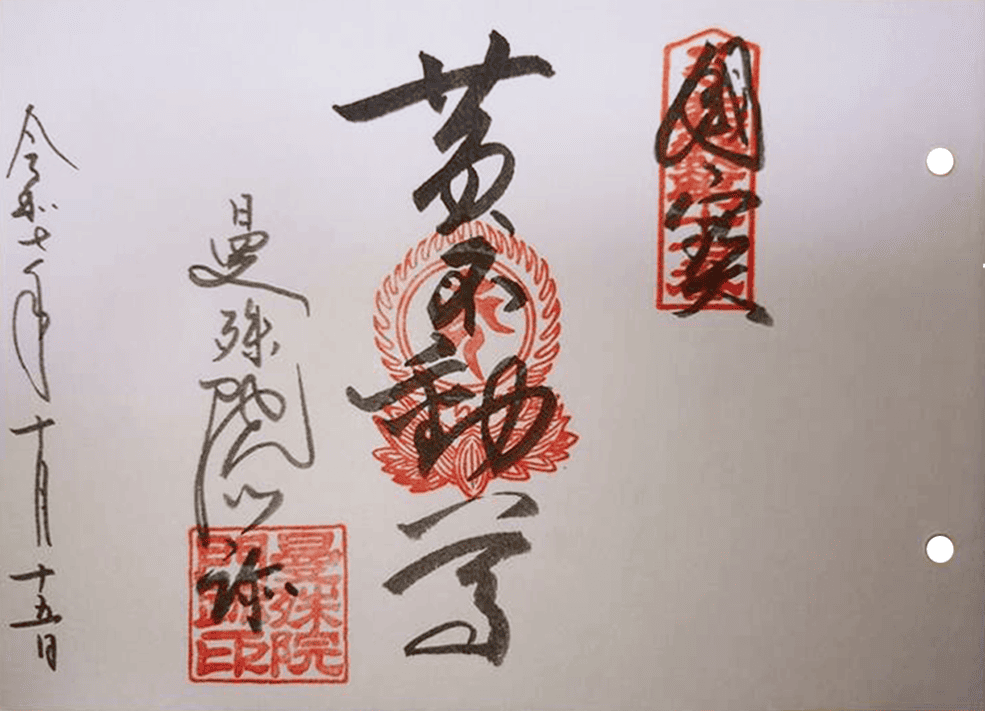 國寶
黄不動尊
曼殊院門跡
曼殊院
門跡印
令和七年十月十五日